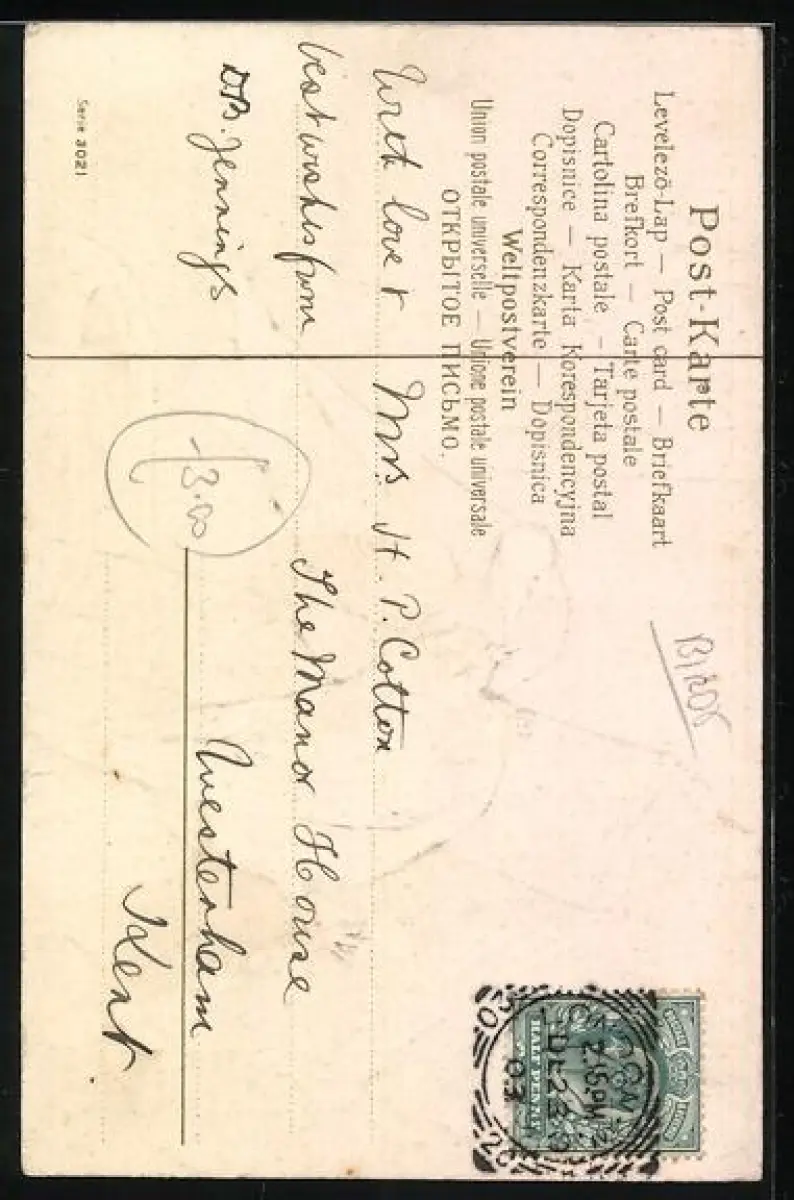 Post-Karte
Levelező-Lap — Post card — Briefkaart
Brefkort — Carte postale
Cartolina postale — Tarjeta postal
Dopisnice — Karta Korespondencyjna
Correspondenzkarte — Dopisnica
Weltpostverein
Union postale universelle — Unione postale universale
ОТКРЫТОЕ ПИСЬМО.
BIRDS
With love &
best wishes from
DB. Jennings
Serie 3021
Mrs H. P. Cotton
The Manor House
Westerham
Kent
3.00
HALF PENNY
2.45.PM
DE 23
03